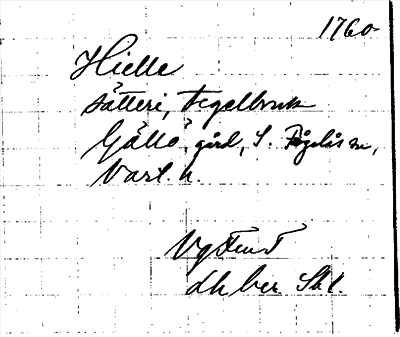 1760
Hielle
säteri, Tegelbruk
Gällö gård, S. Fågelås sn,
Vart. h.
Vg
dh ber. Skl.